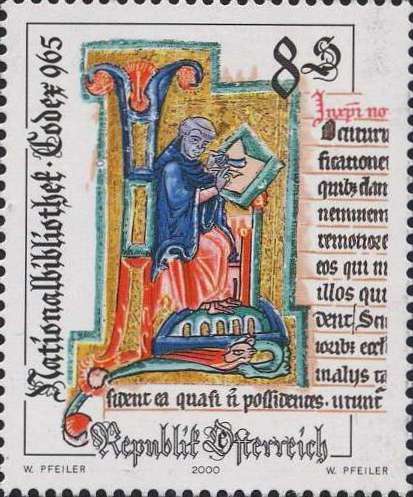 8 S
Nationalbibliothek · Codex 965
Inxp̄i no
Dciturur
ficatione
quibz dam
neminem
remotiore
eos qui m
illos qui
dent. Sen
joribz eccl
malys ta
sident ea quasi n̄ possidentes. urunt̄
Republik Österreich
W. PFEILER 2000 W. PFEILER